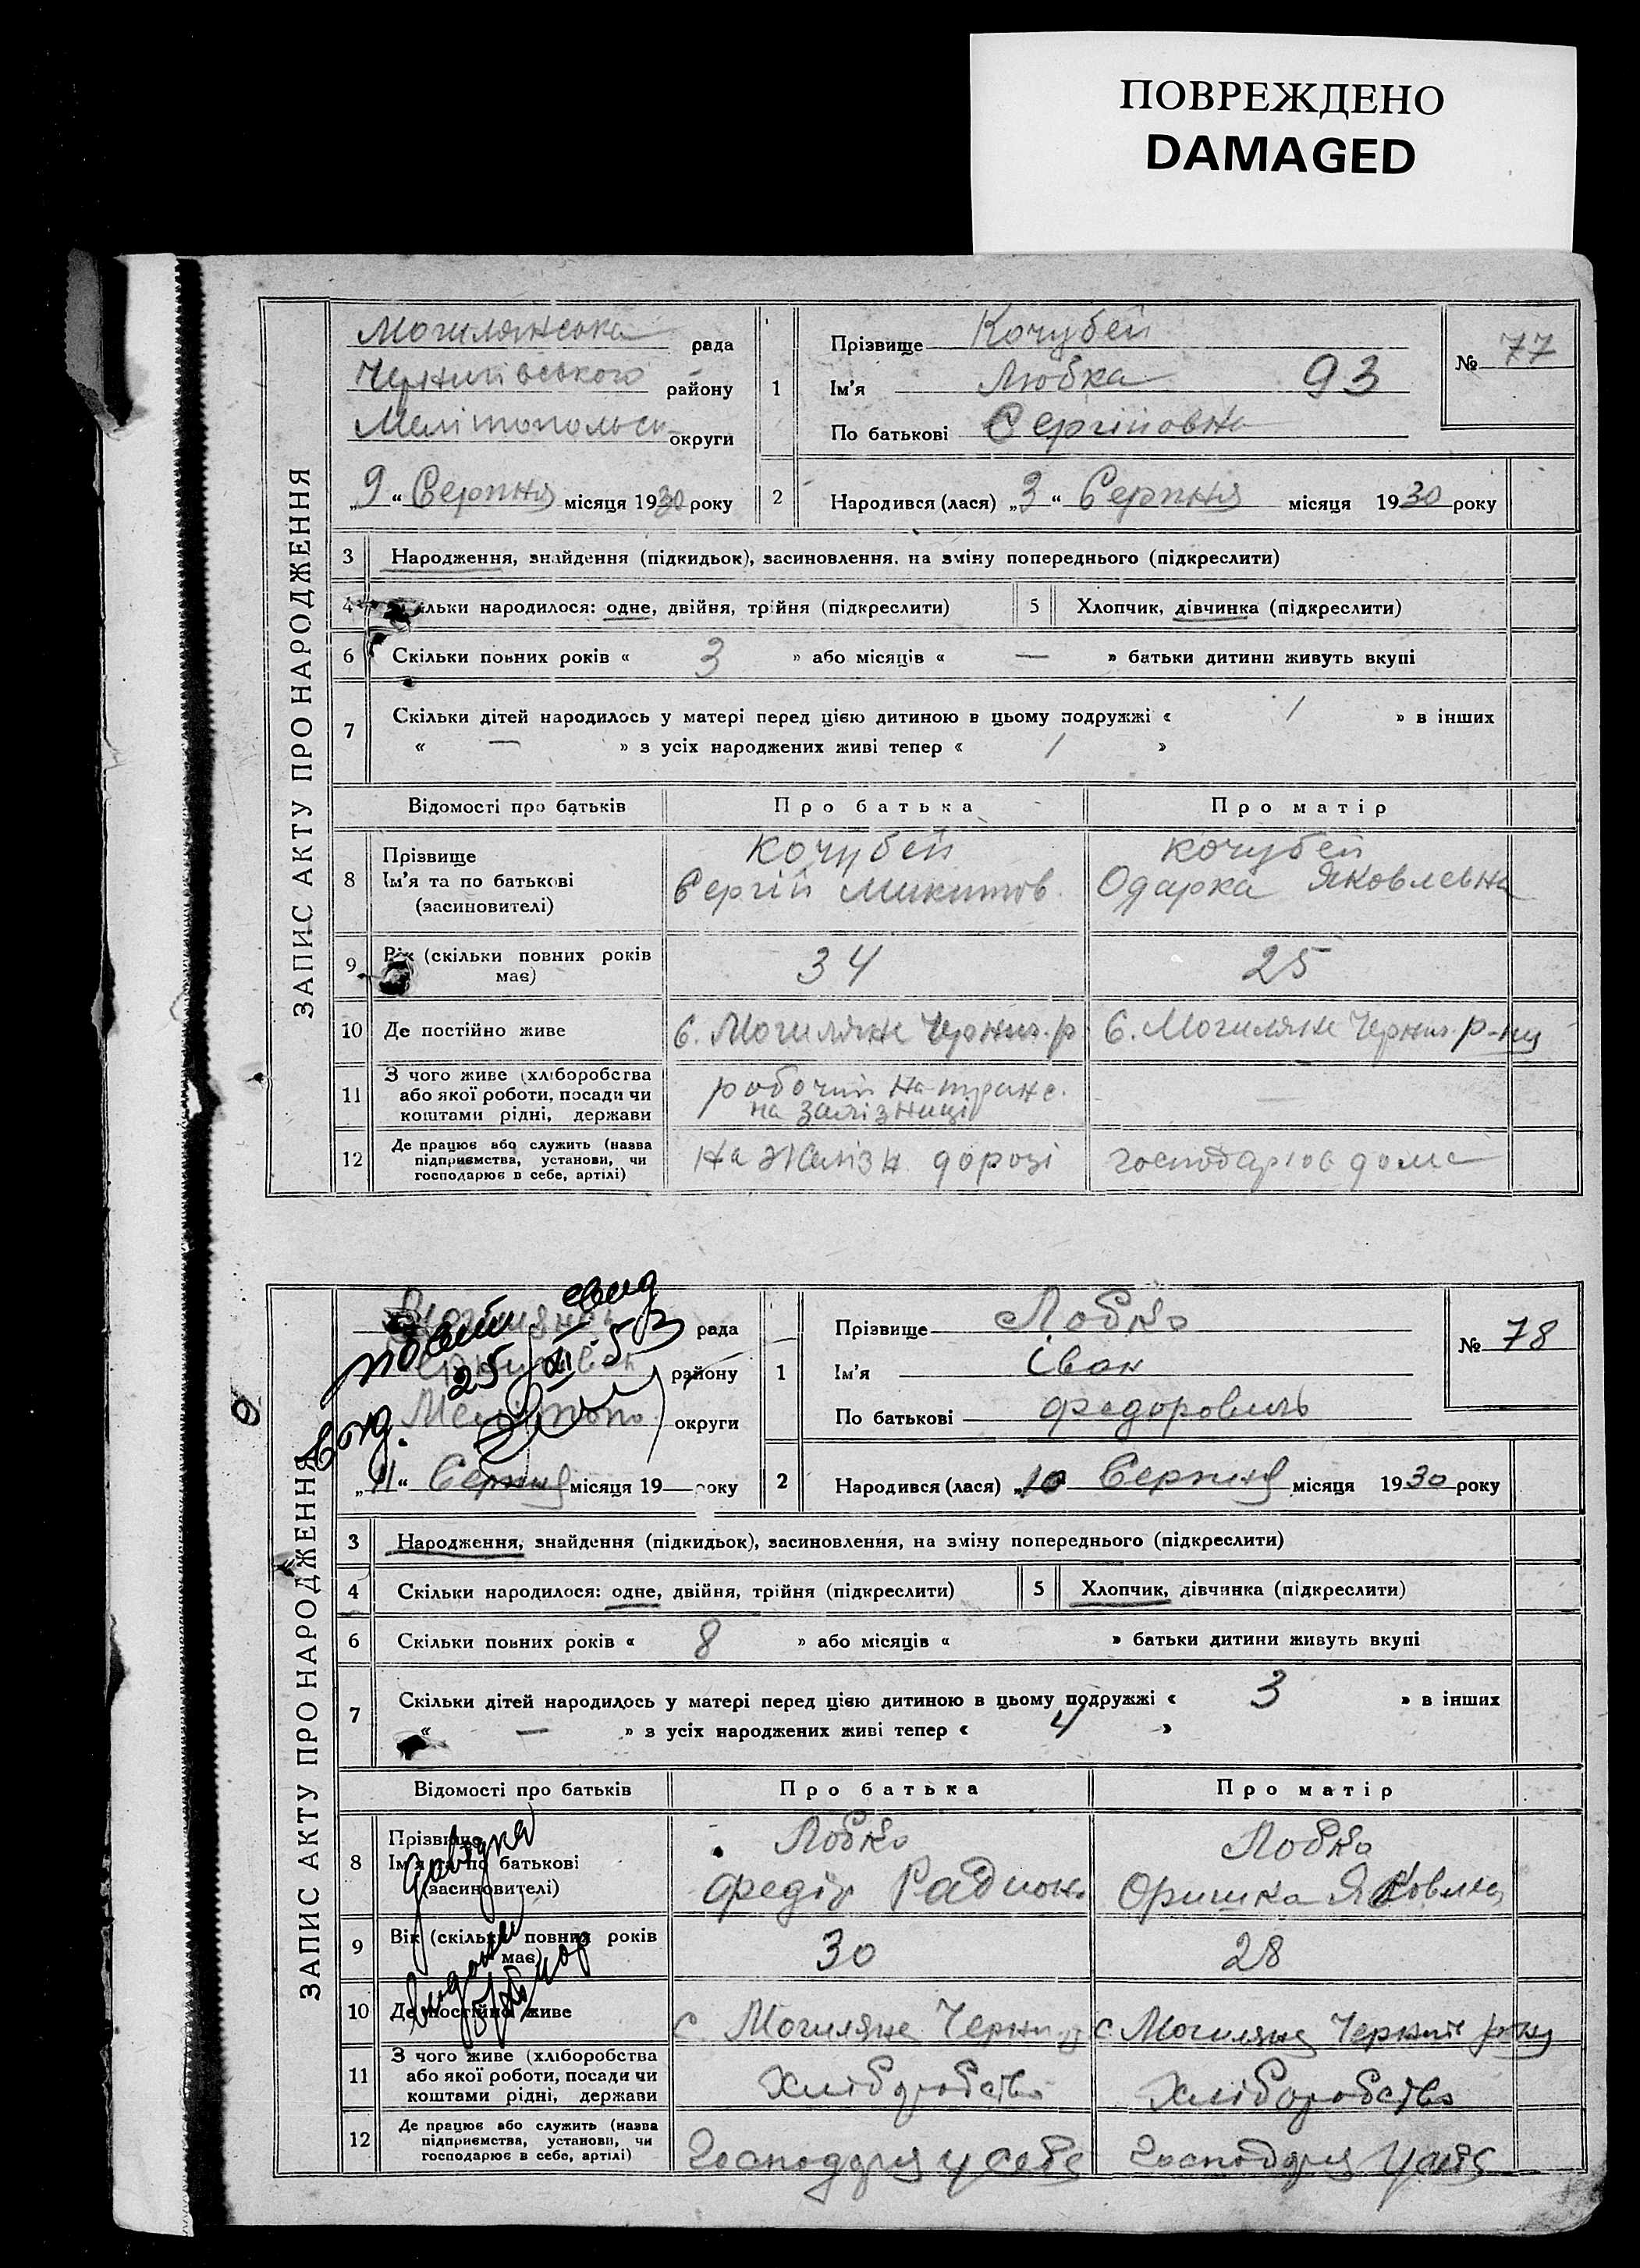 ПОВРЕЖДЕНО
DAMAGED
ЗАПИС АКТУ ПРО НАРОДЖЕННЯ
Могилянська рада
Чернигівського району
Мелітопольськ округи
„9“ Серпня місяця 1930 року
1
Прізвище Кочубей
Ім'я Любка 93
По батькові Сергіївна
№ 77
2 Народився (лася) „3“ Серпня місяця 1930 року
3 Народження, знайдення (підкидьок), засиновлення, на зміну попереднього (підкреслити)
4 Скільки народилося: одне, двійня, трійня (підкреслити) 5 Хлопчик, дівчинка (підкреслити)
6 Скільки повних років « 3 » або місяців « — » батьки дитини живуть вкупі
7 Скільки дітей народилось у матері перед цією дитиною в цьому подружжі « 1 » в інших
« — » з усіх народжених живі тепер « 1 »
Відомості про батьків Про батька Про матір
8 Прізвище Кочубей Кочубей
Ім'я та по батькові Сергій Микитов. Одарка Яковлевна
(засиновителі)
9 Вік (скільки повних років має) 34 25
10 Де постійно живе С. Могиляне Черниг. р С. Могиляне Черниг. р-ну
11 З чого живе (хліборобства або якої роботи, посади чи коштами рідні, держави робочий на
на залізниці —
12 Де працює або служить (назва підприємства, установи, чи господарює в себе, артілі) на желізн дорозі господарює дома
ЗАПИС АКТУ ПРО НАРОДЖЕННЯ
рада
району
Меліtопо округи
25/XI-53
„11“ Серпня місяця 19 року
1
Прізвище Лобко
Ім'я Іван
По батькові Федорович
№ 78
2 Народився (лася) „10 Серпня місяця 1930 року
3 Народження, знайдення (підкидьок), засиновлення, на зміну попереднього (підкреслити)
4 Скільки народилося: одне, двійня, трійня (підкреслити) 5 Хлопчик, дівчинка (підкреслити)
6 Скільки повних років « 8 » або місяців « » батьки дитини живуть вкупі
7 Скільки дітей народилось у матері перед цією дитиною в цьому подружжі « 3 » в інших
« — » з усіх народжених живі тепер « 4 »
Відомості про батьків Про батька Про матір
8 Прізвище Лобко Лобко
Ім'я та по батькові Федір Радион. Оришка Яковлев
(засиновителі)
9 Вік (скільки повних років має) 30 28
10 Де постійно живе с. Могиляне Черни с Могиляне Черниг р-ну
11 З чого живе (хліборобства або якої роботи, посади чи коштами рідні, держави Хліборобство Хліборобство
12 Де працює або служить (назва підприємства, установи, чи господарює в себе, артілі) Господаря у себе Господаря у себе